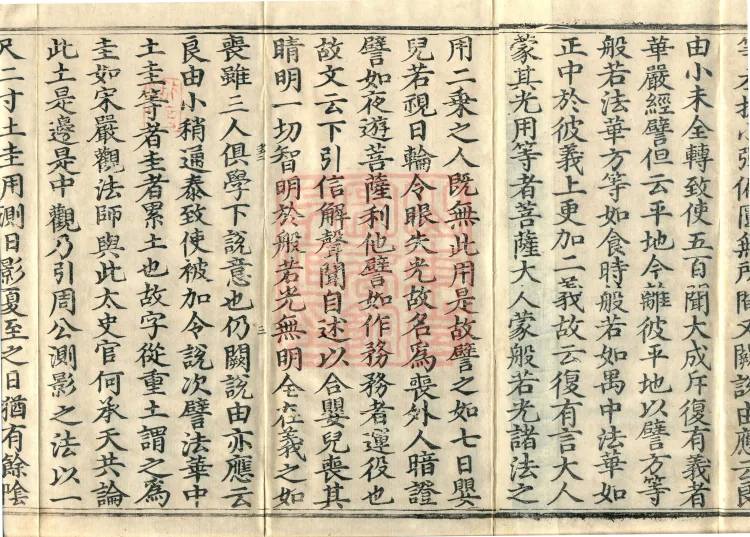 文闕說由應云
由小未全轉致使五百聞大成斥復有義者
華嚴經譬但云平地今離彼平地以譬方等
般若法華方等如食時般若如禺中法華如
正中於彼義上更加二義故云復有言大人
蒙其光用等者菩薩大人蒙般若光諸法之
用二乘之人既無此用是故譬之如七日嬰
兒若視日輪令眼失光故名爲喪外人暗證
譬如夜遊菩薩利他譬如作務務者運役也
故文云下引信解聲聞自述以合嬰兒喪其
睛明一切智明於般若光無明全在義之如
喪雖三人俱學下說意也仍闕說由亦應云
良由小稍通泰致使被加令說次譬法華中
土圭等者圭者累土也故字從重土謂之爲
圭如宋嚴觀法師與此太史官何承天共論
此土是邊是中觀乃引周公測影之法以一
尺二寸土圭用測日影夏至之日猶有餘陰